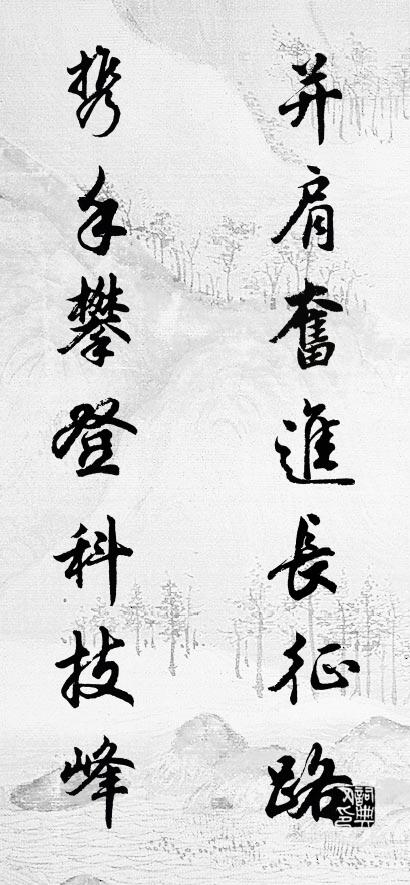 并肩奮進長征路
携手攀登科技峰